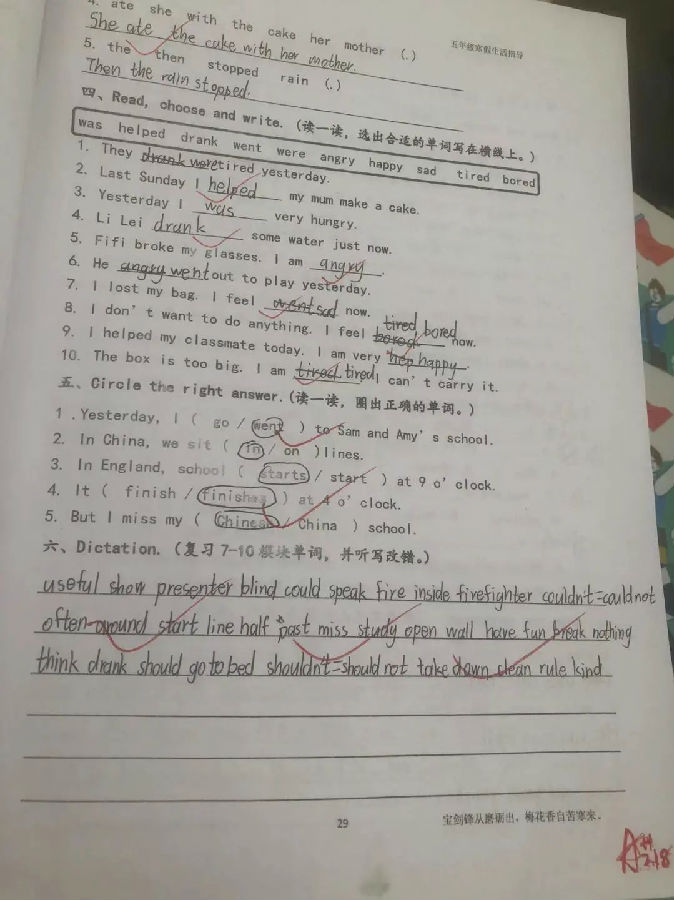 4. ate she with the cake her mother (.)
五年级寒假生活指导
She ate the cake with her mother.
5. the then stopped rain (.)
Then the rain stopped.
四、Read, choose and write. (读一读，选出合适的单词写在横线上。)
was helped drank went were angry happy sad tired bored
1. They drank were tired yesterday.
2. Last Sunday I helped my mum make a cake.
3. Yesterday I was very hungry.
4. Li Lei drank some water just now.
5. Fifi broke my glasses. I am angry.
6. He angry went out to play yesterday.
7. I lost my bag. I feel went sad now.
8. I don't want to do anything. I feel tired bored bored now.
9. I helped my classmate today. I am very hep happy.
10. The box is too big. I am tired tired, I can't carry it.
五、Circle the right answer. (读一读，圈出正确的单词。)
1. Yesterday, I ( go / went ) to Sam and Amy's school.
2. In China, we sit ( in / on ) lines.
3. In England, school ( starts / start ) at 9 o'clock.
4. It ( finish / finishes ) at 4 o'clock.
5. But I miss my ( Chinese / China ) school.
六、Dictation. (复习7-10模块单词，并听写改错。)
useful show presenter blind could speak fire inside firefighter couldn't=could not
often around start line half past miss study open wall have fun break nothing
think drank should go to bed shouldn't=should not take down clean rule kind
29
宝剑锋从磨砺出，梅花香自苦寒来。
A
2.18